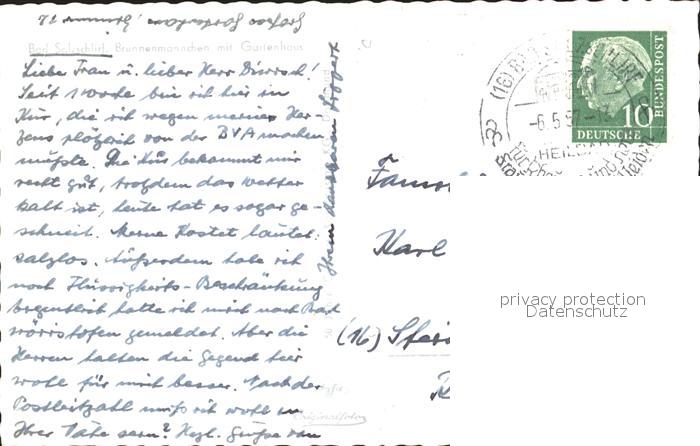 Bad Salzschlirf, Brunnenmännchen mit Gartenhaus
Liebe Frau u. lieber Herr
Seit 1 Woche bin ich hier in
Kur, die ich wegen meines Her-
zens plötzlich von der BVA machen
mußte. Die Kur bekommt mir
recht gut, trotzdem das Wetter
kalt ist, heute hat es sogar ge-
schneit. Meine Kostet lautet:
salzlos. Außerdem habe ich
noch Flüssigkeits-Beschränkung
Eigentlich hatte ich mich nach Bad
Wörrishofen gemeldet. Aber die
Herren halten die Gegend hier
wohl für mich besser. Nach der
Postleitzahl muß ich wohl in
Ihrer Nähe sein? Hzgl. Grüße von
Ihrem dankbaren
Zimmer 72
(16) BAD
-6.5.57-
HEILBAD
10
DEUTSCHE
BUNDESPOST
Karl
(16)
privacy protection
Datenschutz
Originalfoto